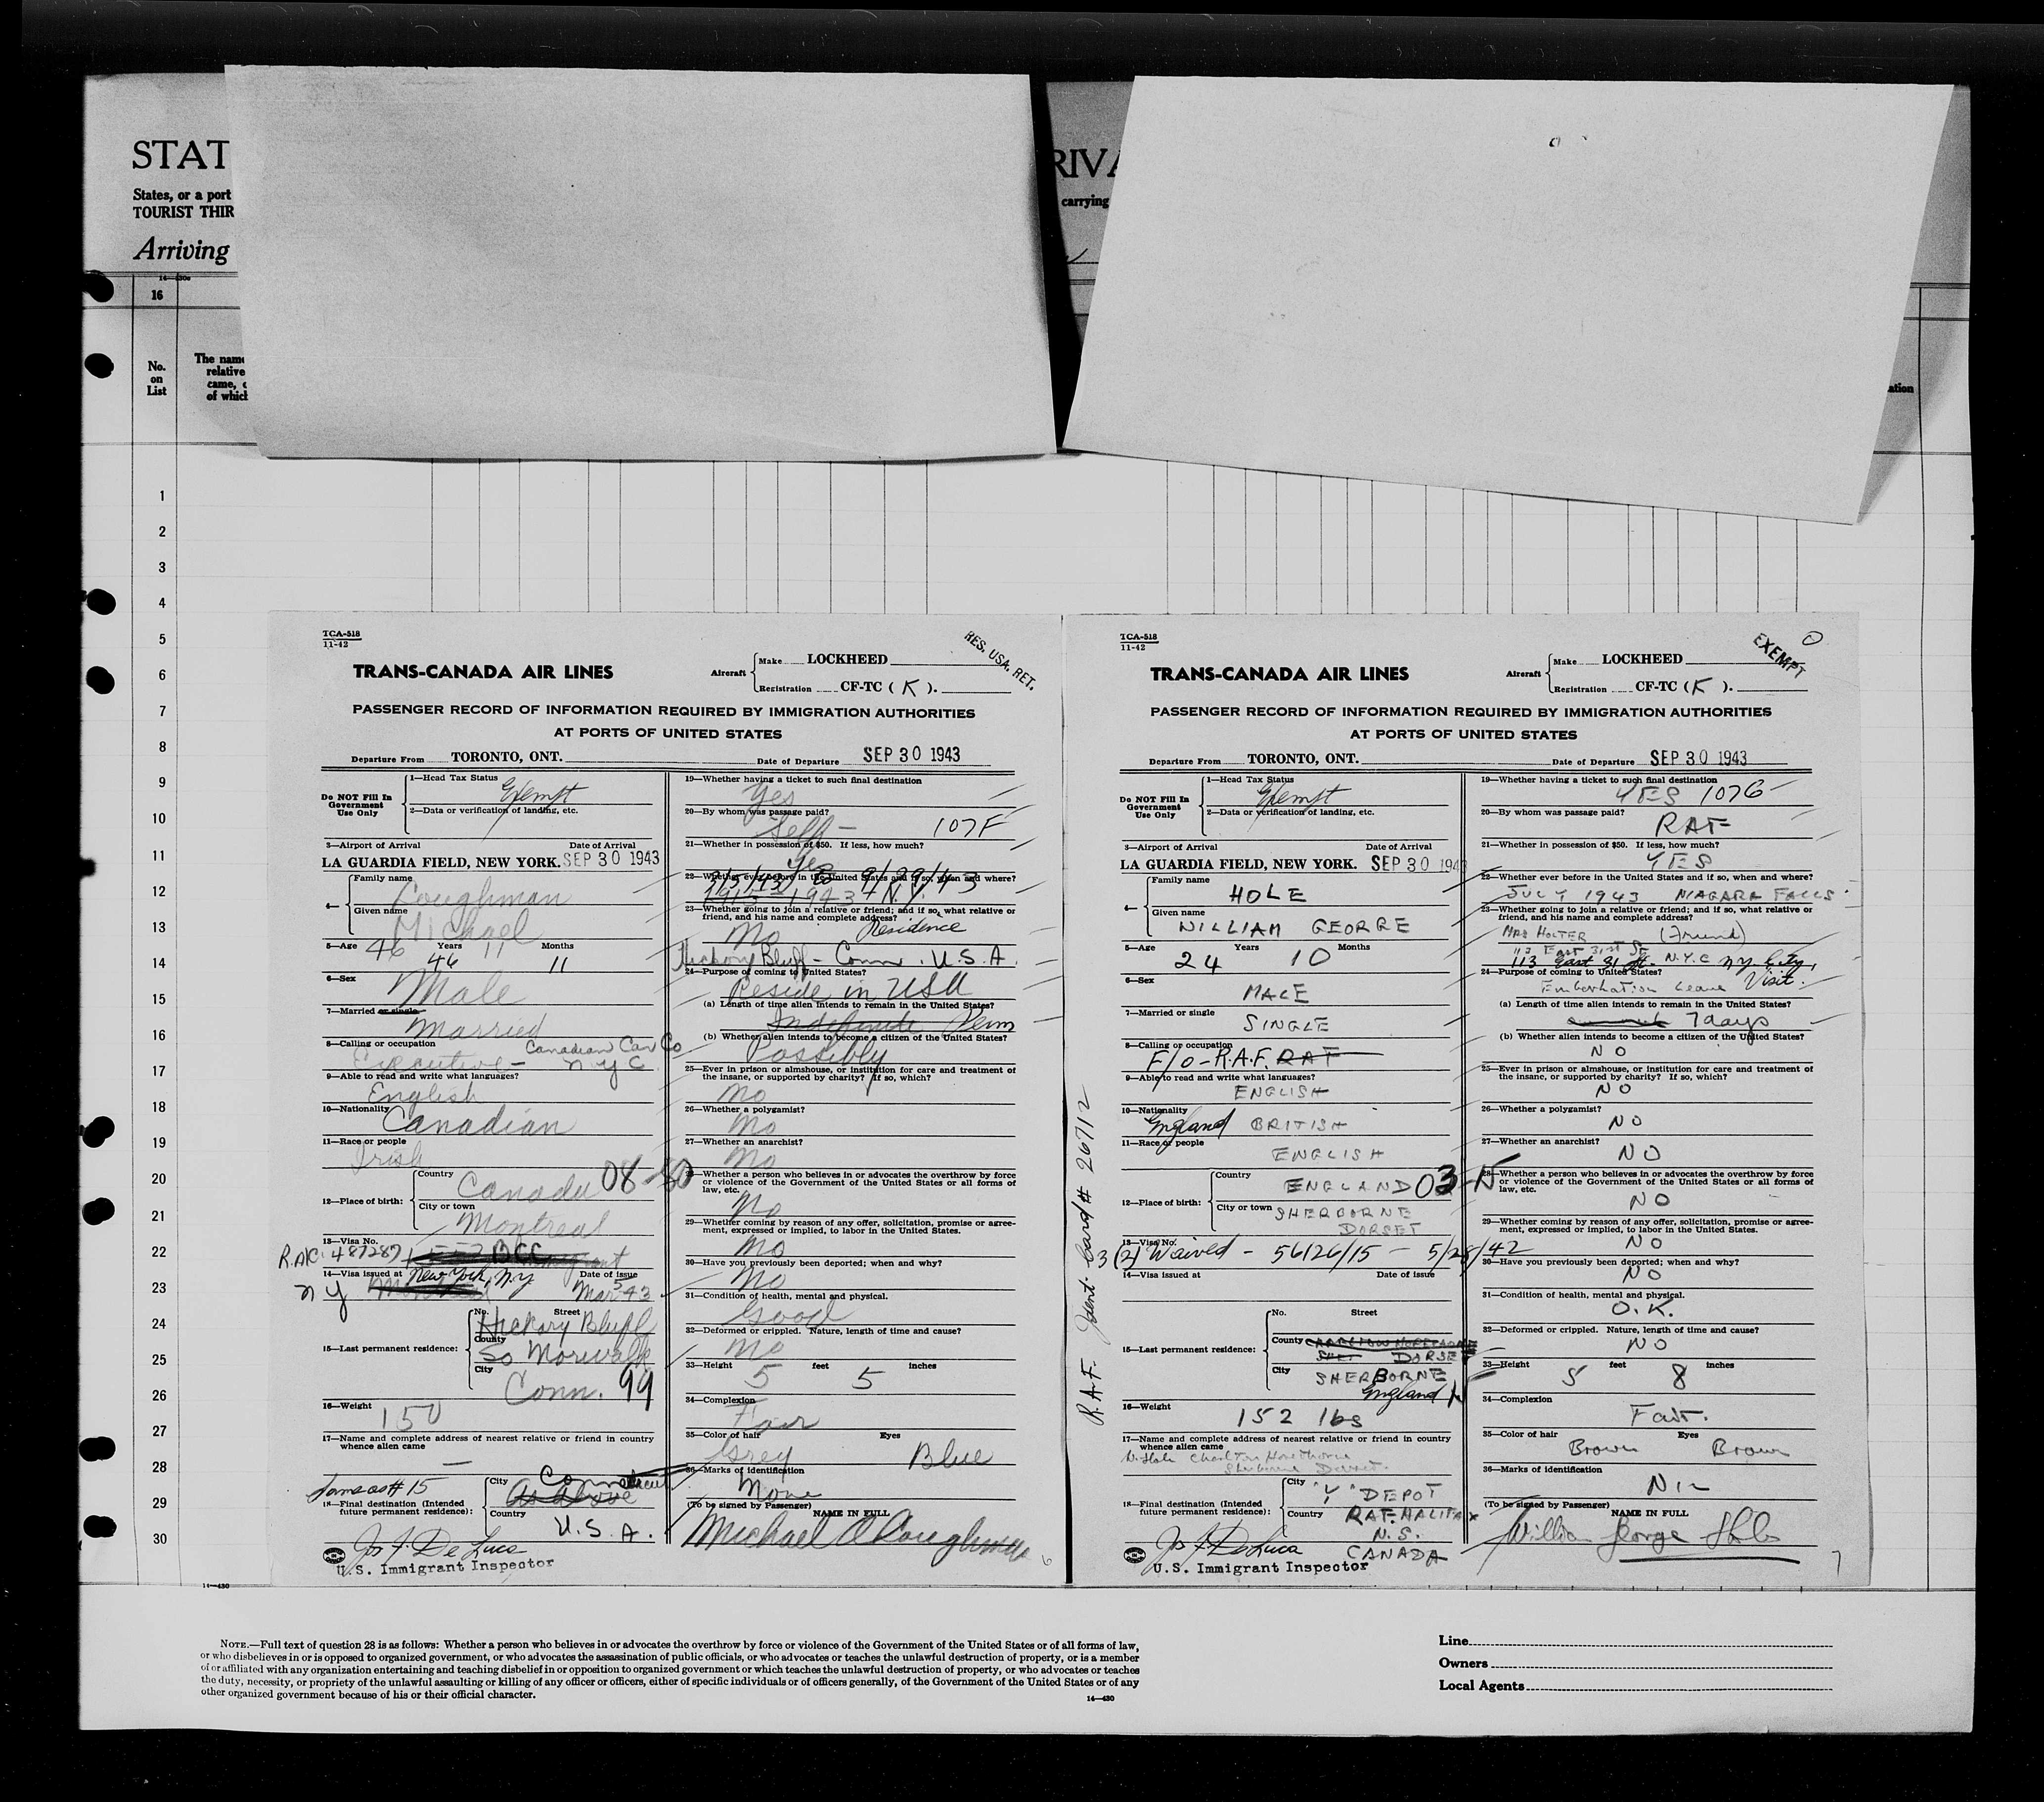 STAT
States, or a port
TOURIST THIR
Arriving
RIVA
carrying
14—430a
16
No.
on
List
The name
relative
came, o
of which
ation
1
2
3
4
5
6
7
8
9
10
11
12
13
14
15
16
17
18
19
20
21
22
23
24
25
26
27
28
29
30
TCA-518
11-42
RES. USA. RET.
TRANS-CANADA AIR LINES
Aircraft
Make LOCKHEED
Registration CF-TC ( K ).
PASSENGER RECORD OF INFORMATION REQUIRED BY IMMIGRATION AUTHORITIES
AT PORTS OF UNITED STATES
Departure From TORONTO, ONT. Date of Departure SEP 30 1943
Do NOT Fill In
Government
Use Only
1—Head Tax Status
Exempt
2—Data or verification of landing, etc.
3—Airport of Arrival Date of Arrival
LA GUARDIA FIELD, NEW YORK. SEP 30 1943
4—
Family name
Coughman
Given name
Michael
5—Age 46 Years 11 Months
46 11
6—Sex
Male
7—Married or single
Married
8—Calling or occupation
Canadian Car Co
Executive – N Y C
9—Able to read and write what languages?
English
10—Nationality
Canadian
11—Race or people
Irish
12—Place of birth:
Country
Canada 08-50
City or town
Montreal
13—Visa No.
R.A.C. 487287
14—Visa issued at New York, N.Y. Date of issue
N Y Mar 5 43
15—Last permanent residence:
No. Street
Hickory Bluff
County
So Norwalk
City
Conn. 99
16—Weight
150
17—Name and complete address of nearest relative or friend in country
whence alien came
—
Same as # 15
18—Final destination (Intended
future permanent residence):
City Connecticut
As above
Country
U.S.A.
Jos J. De Luca
U.S. Immigrant Inspector
19—Whether having a ticket to such final destination
Yes
20—By whom was passage paid?
Self – 107F
21—Whether in possession of $50. If less, how much?
Yes
22—Whether ever before in the United States and if so, when and where?
1943 N.Y.
23—Whether going to join a relative or friend; and if so, what relative or
friend, and his name and complete address?
No Residence
Hickory Bluff – Conn. U.S.A.
24—Purpose of coming to United States?
Reside in USA
(a) Length of time alien intends to remain in the United States?
Indefinite Perm
(b) Whether alien intends to become a citizen of the United States?
Possibly
25—Ever in prison or almshouse, or institution for care and treatment of
the insane, or supported by charity? If so, which?
No
26—Whether a polygamist?
No
27—Whether an anarchist?
No
28—Whether a person who believes in or advocates the overthrow by force
or violence of the Government of the United States or all forms of
law, etc.
No
29—Whether coming by reason of any offer, solicitation, promise or agree-
ment, expressed or implied, to labor in the United States.
No
30—Have you previously been deported; when and why?
No
31—Condition of health, mental and physical.
Good
32—Deformed or crippled. Nature, length of time and cause?
No
33—Height 5 feet 5 inches
34—Complexion
Fair
35—Color of hair Eyes
Grey Blue
36—Marks of identification
None
(To be signed by Passenger) NAME IN FULL
Michael A Coughman
6
TCA-518
11-42
EXEMPT
TRANS-CANADA AIR LINES
Aircraft
Make LOCKHEED
Registration CF-TC ( K ).
PASSENGER RECORD OF INFORMATION REQUIRED BY IMMIGRATION AUTHORITIES
AT PORTS OF UNITED STATES
Departure From TORONTO, ONT. Date of Departure SEP 30 1943
Do NOT Fill In
Government
Use Only
1—Head Tax Status
Exempt
2—Data or verification of landing, etc.
3—Airport of Arrival Date of Arrival
LA GUARDIA FIELD, NEW YORK. SEP 30 1943
4—
Family name
HOLE
Given name
WILLIAM GEORGE
5—Age Years Months
24 10
6—Sex
MALE
7—Married or single
SINGLE
8—Calling or occupation
F/O – R.A.F. RAF
9—Able to read and write what languages?
ENGLISH
10—Nationality
England BRITISH
11—Race or people
ENGLISH
12—Place of birth:
Country
ENGLAND 03-15
City or town SHERBORNE
DORSET
13—Visa No.
3 (2) Waived – 56126/15 – 5/28/42
14—Visa issued at Date of issue
15—Last permanent residence:
No. Street
County
DORSET
City
SHERBORNE
England
16—Weight
152 lbs
17—Name and complete address of nearest relative or friend in country
whence alien came
W. Hole Charlton Horethorne
Sherborne Dorset.
18—Final destination (Intended
future permanent residence):
City "Y" DEPOT
Country RAF. HALIFAX
N.S.
CANADA
Jos J. De Luca
U.S. Immigrant Inspector
R.A.F. Ident. card # 26712
19—Whether having a ticket to such final destination
YES 107G
20—By whom was passage paid?
RAF
21—Whether in possession of $50. If less, how much?
YES
22—Whether ever before in the United States and if so, when and where?
JULY 1943 NIAGARA FALLS
23—Whether going to join a relative or friend; and if so, what relative or
friend, and his name and complete address?
MRS HOLTER (Friend)
113 East 31st St N.Y.C
113 East 31 St. N.Y. City,
24—Purpose of coming to United States? Visit.
Embarkation Leave
(a) Length of time alien intends to remain in the United States?
7 days
(b) Whether alien intends to become a citizen of the United States?
NO
25—Ever in prison or almshouse, or institution for care and treatment of
the insane, or supported by charity? If so, which?
NO
26—Whether a polygamist?
NO
27—Whether an anarchist?
NO
28—Whether a person who believes in or advocates the overthrow by force
or violence of the Government of the United States or all forms of
law, etc.
NO
29—Whether coming by reason of any offer, solicitation, promise or agree-
ment, expressed or implied, to labor in the United States.
NO
30—Have you previously been deported; when and why?
NO
31—Condition of health, mental and physical.
O.K.
32—Deformed or crippled. Nature, length of time and cause?
NO
33—Height feet inches
5 8
34—Complexion
Fair.
35—Color of hair Eyes
Brown Brown
36—Marks of identification
NIL
(To be signed by Passenger) NAME IN FULL
William George Hole
7
14—430
NOTE.—Full text of question 28 is as follows: Whether a person who believes in or advocates the overthrow by force or violence of the Government of the United States or of all forms of law,
or who disbelieves in or is opposed to organized government, or who advocates the assassination of public officials, or who advocates or teaches the unlawful destruction of property, or is a member
of or affiliated with any organization entertaining and teaching disbelief in or opposition to organized government or which teaches the unlawful destruction of property, or who advocates or teaches
the duty, necessity, or propriety of the unlawful assaulting or killing of any officer or officers, either of specific individuals or of officers generally, of the Government of the United States or of any
other organized government because of his or their official character.
14—430
Line
Owners
Local Agents